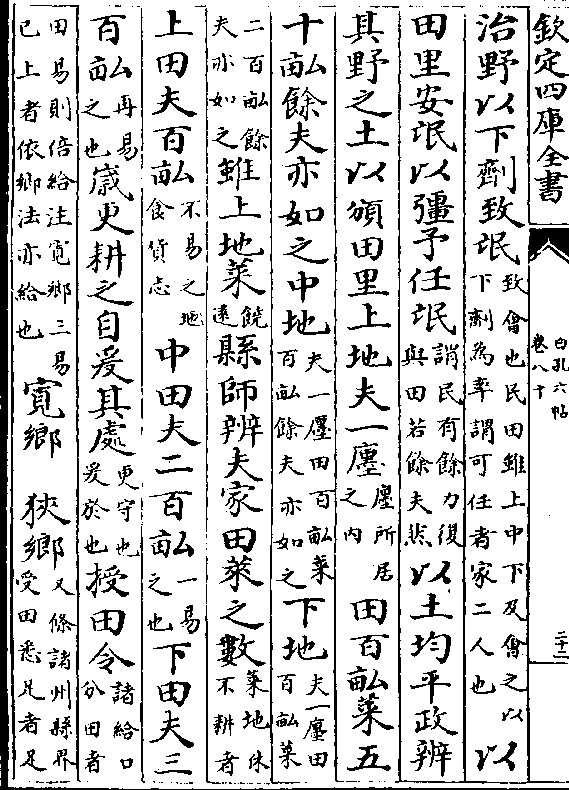 欽定四庫全書
白孔六帖
卷八十
二十二
治野以下劑致氓致會也民田雖上中下及會之以下劑為率謂可任者家二人也以
田里安氓以彊予任氓謂民有餘力復與田若餘夫然以土均平政辨
其野之土以頒田里上地夫一廛廛所居之内田百畝萊五
十畝餘夫亦如之中地夫一廛田百畝萊百畝餘夫亦如之下地夫一廛田百畝萊
二百畝餘夫亦如之雖上地萊饒遠縣師辨夫家田萊之數萊地休不耕者
上田夫百畝不易之地食貨志中田夫二百畝一易之也下田夫三
百畝再易之也歲更耕之自爰其處更守也爰於也授田令諸給口分田者
田易則倍給注寬鄉三易已上者依鄉法亦給也寬鄉 狹鄉又條諸州縣界受田悉足者足